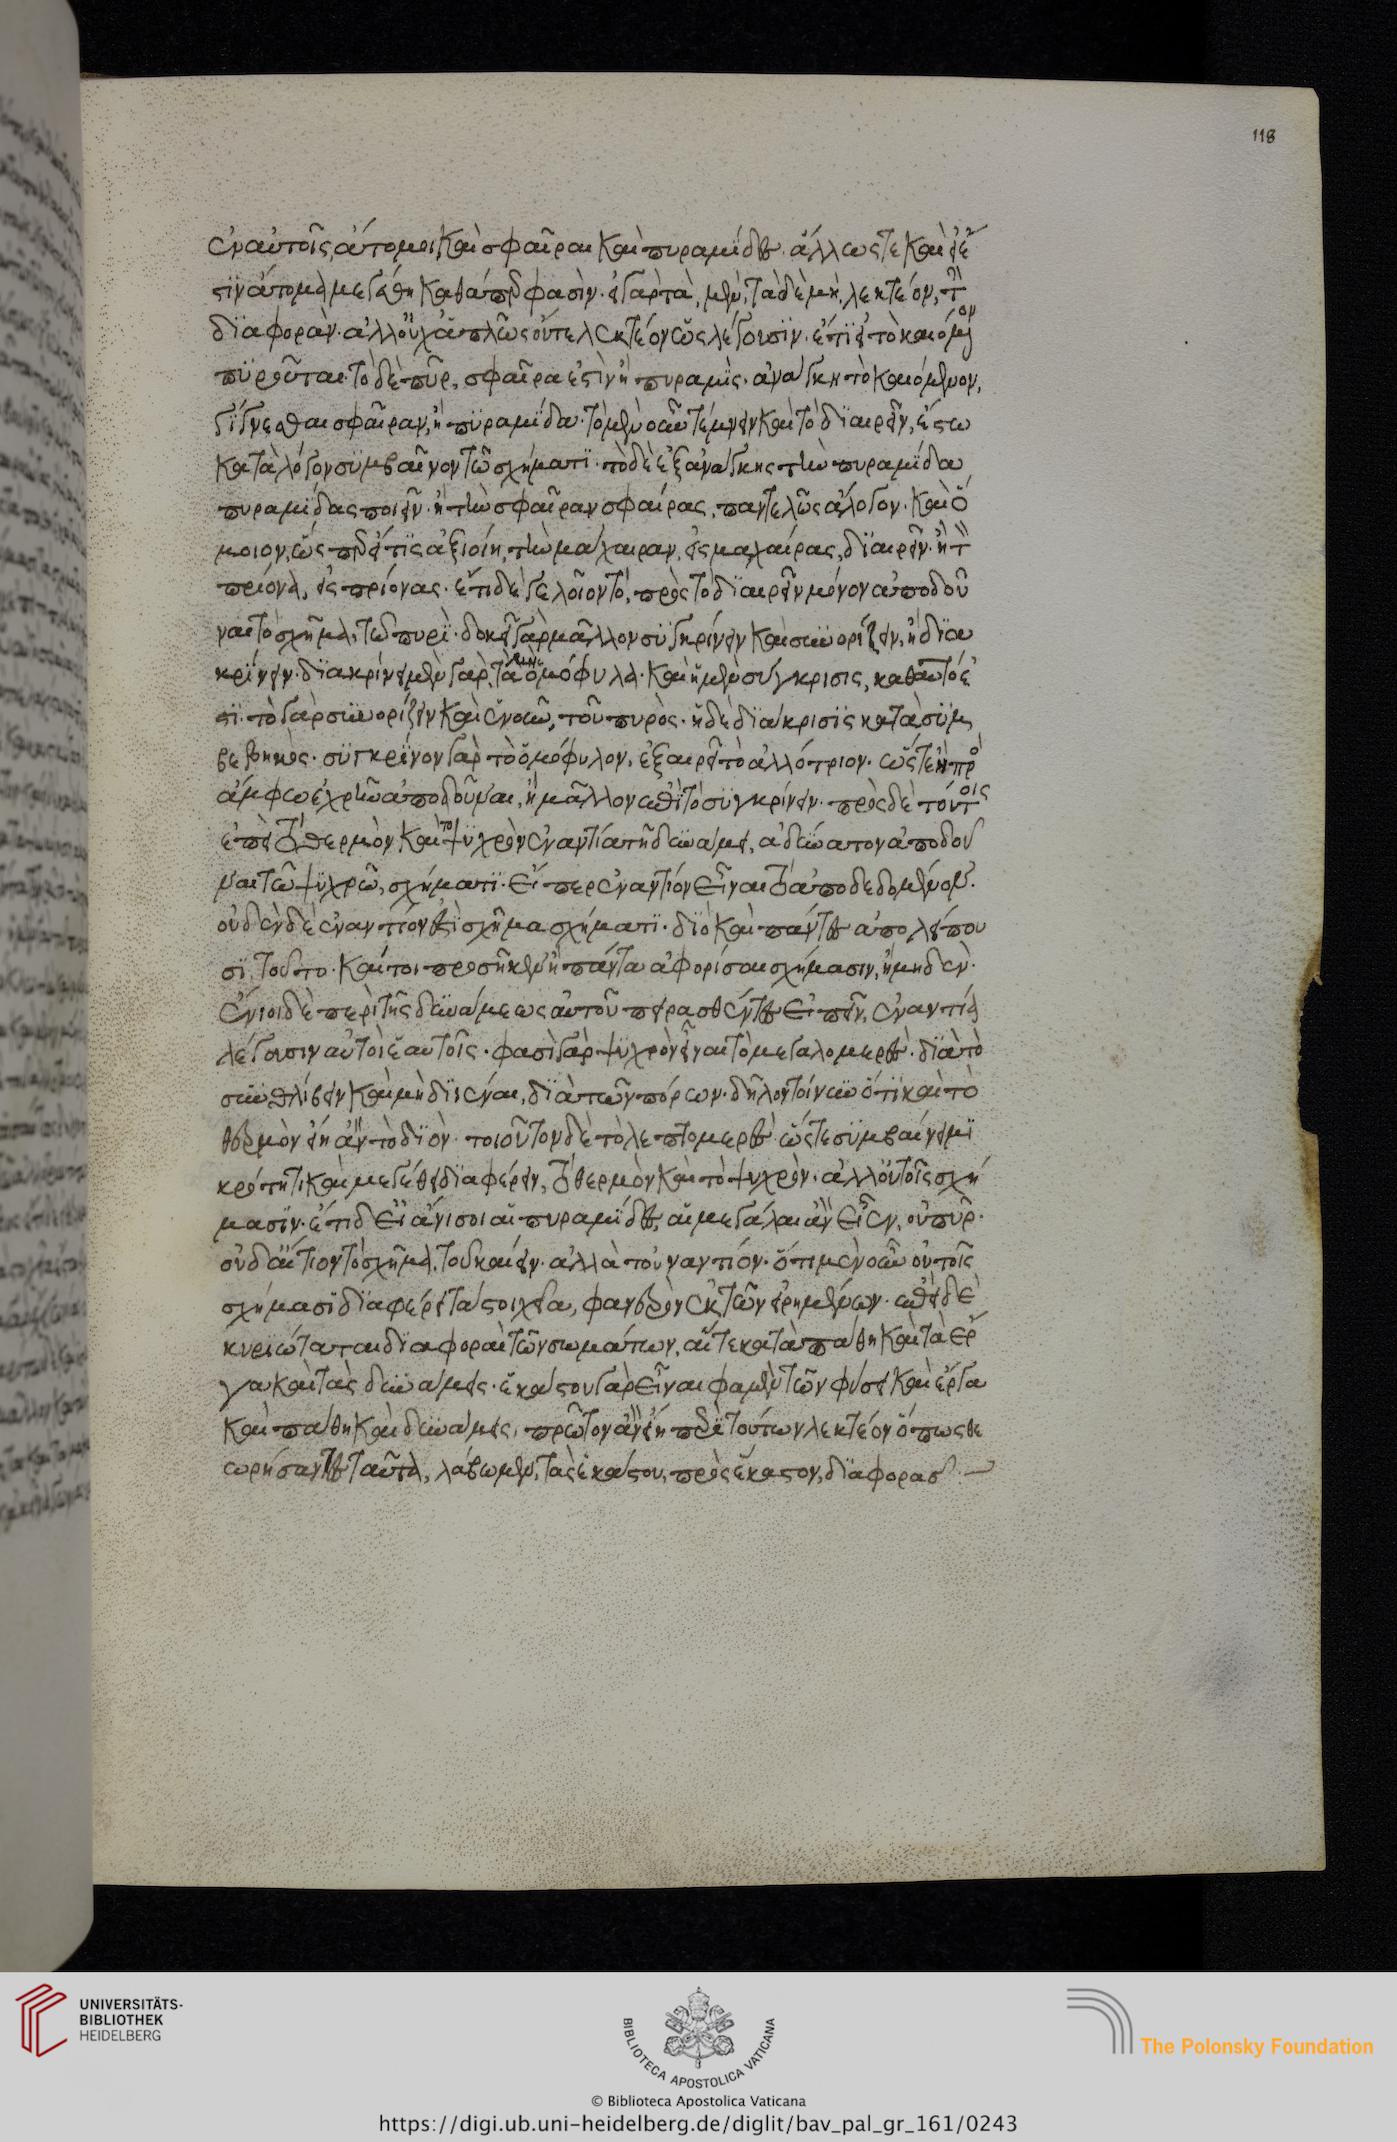 118
ἐν αὐτοῖς ἄτομοι καὶ σφαῖραι καὶ πυραμίδες. ἄλλως τε καὶ εἰ ἔ
στιν ἄτομα μεγέθη καθάπερ φασὶν. εἰ γὰρ τὰ μὲν, τὰ δὲ μὴ, λεκτέον, τὴν
διαφορὰν. ἀλλ' οὐχ ἁπλῶς οὕτε λεκτέον ὡς λέγουσιν. ἔτι εἰ τὸ καιόμενον
πυροῦται. τὸ δὲ πῦρ, σφαῖρα ἐστὶν ἢ πυραμίς. ἀνάγκη τὸ καιόμενον,
γίγνεσθαι σφαῖραν, ἢ πυραμίδα. τὸ μὲν οὖν τέμνειν καὶ τὸ διαιρεῖν, ἔστω
κατὰ λόγον συμβαῖνον τῶ σχήματι. τὸ δὲ ἐξ ἀνάγκης τὴν πυραμίδα
πυραμίδας ποιεῖν. ἢ τὴν σφαῖραν σφαίρας, παντελῶς ἄλογον. καὶ ὅ
μοιον, ὥσπερ εἴ τις ἀξιοίη, τὴν μάχαιραν, εἰς μαχαίρας, διαιρεῖν. ἢ τὸν
πρίονα, εἰς πρίονας. ἔτι δὲ γελοῖον τό, πρὸς τὸ διαιρεῖν μόνον ἀποδοῦ
ναι τὸ σχῆμα, τῶ πυρὶ. δοκεῖ γὰρ μᾶλλον συγκρίνειν καὶ συνορίζειν, ἢ δια
κρίνειν. διακρίνει μὲν γὰρ, τὰ μὴ ὁμόφυλα. καὶ ἡ μὲν σύγκρισις, καθ' αὑτό ἐ
στι. τὸ γὰρ συνορίζειν καὶ ἑνοῦν, τοῦ πυρὸς. ἡ δὲ διάκρισις κατὰ συμ
βεβηκὸς. συγκρῖνον γὰρ τὸ ὁμόφυλον, ἐξαιρεῖ τὸ ἀλλότριον. ὥστε ἢ πρὸς
ἄμφω ἐχρῆν ἀποδοῦναι, ἢ μᾶλλον ἐπὶ τὸ συγκρίνειν. πρὸς δὲ τούτοις
ἐπεὶ τὸ θερμὸν καὶ τὸ ψυχρὸν ἐναντία τῆ δυνάμει, ἀδύνατον ἀποδοῦ
ναι τῶ ψυχρῶ, σχήματι. εἴπερ ἐναντίον εἶναι τὸ ἀποδεδομένον.
οὐδὲν δὲ ἐναντίον ἐστὶ σχῆμα σχήματι. διὸ καὶ πάντες ἀπολείπου
σι, τοῦτο. καίτοι προσῆκεν ἢ πάντα ἀφορίσαι σχήμασιν, ἢ μηδὲν.
ἔνιοι δὲ περὶ τῆς δυνάμεως αὐτοῦ πειρασθέντες εἰπεῖν, ἐναντία
λέγουσιν αὐτοὶ ἑαυτοῖς. φασὶ γὰρ ψυχρὸν εἶναι τὸ μεγαλομερὲς. διὰ τὸ
συνθλίβειν καὶ μὴ διιέναι, διὰ τῶν πόρων. δῆλον τοίνυν ὅτι καὶ τὸ
θερμὸν εἴη ἂν τὸ διϊὸν. τοιοῦτον δὲ τὸ λεπτομερὲς. ὥστε συμβαίνει μι
κρότητι καὶ μεγέθει διαφέρειν, τὸ θερμὸν καὶ τὸ ψυχρὸν. ἀλλ' οὐ τοῖς σχή
μασιν. ἔτι δ' εἰ ἄνισοι αἱ πυραμίδες, αἱ μεγάλαι ἂν εἶεν, οὐ πῦρ.
οὐδ' αἴτιον τὸ σχῆμα, τοῦ καίειν. ἀλλὰ τοὐναντίον. ὅτι μὲν οὖν οὐ τοῖς
σχήμασι διαφέρει τὰ στοιχεῖα, φανερὸν ἐκ τῶν εἰρημένων. ἐπεὶ δὲ
κυριώταται διαφοραὶ τῶν σωμάτων, αἵ τε κατὰ τὰ πάθη καὶ τὰ ἔρ
γα καὶ τὰς δυνάμεις. ἑκάστου γὰρ εἶναι φαμὲν τῶν φύσει καὶ ἔργα
καὶ πάθη καὶ δυνάμεις, πρῶτον ἂν εἴη περὶ τούτων λεκτέον ὅπως θε
ωρήσαντες ταῦτα, λάβωμεν, τὰς ἑκάστου, πρὸς ἕκαστον, διαφοράς.
UNIVERSITÄTS-
BIBLIOTHEK
HEIDELBERG
BIBLIOTECA APOSTOLICA VATICANA
The Polonsky Foundation
© Biblioteca Apostolica Vaticana
https://digi.ub.uni-heidelberg.de/diglit/bav_pal_gr_161/0243